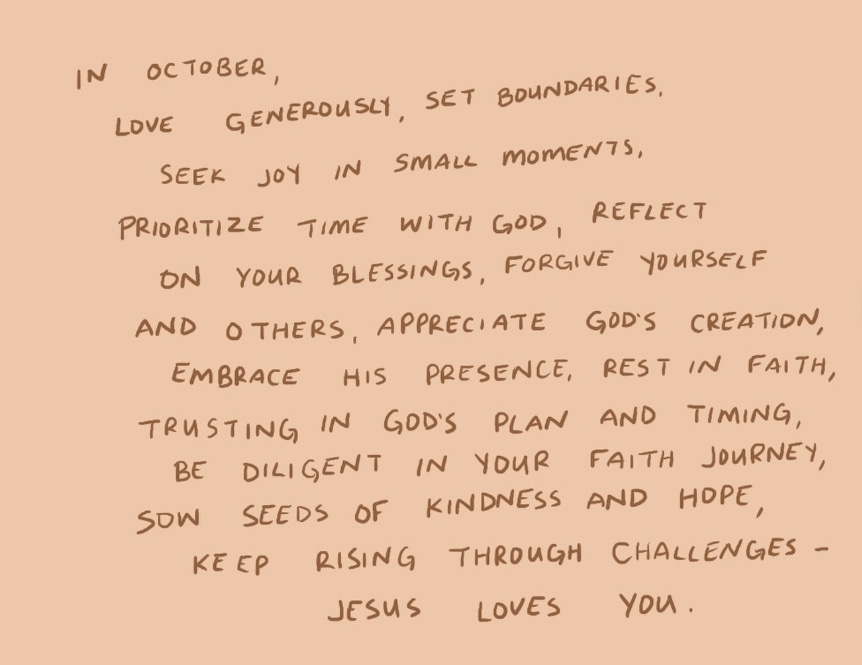 IN OCTOBER,
LOVE GENEROUSLY, SET BOUNDARIES,
SEEK JOY IN SMALL MOMENTS,
PRIORITIZE TIME WITH GOD, REFLECT
ON YOUR BLESSINGS, FORGIVE YOURSELF
AND OTHERS, APPRECIATE GOD'S CREATION,
EMBRACE HIS PRESENCE, REST IN FAITH,
TRUSTING IN GOD'S PLAN AND TIMING,
BE DILIGENT IN YOUR FAITH JOURNEY,
SOW SEEDS OF KINDNESS AND HOPE,
KEEP RISING THROUGH CHALLENGES –
JESUS LOVES YOU.